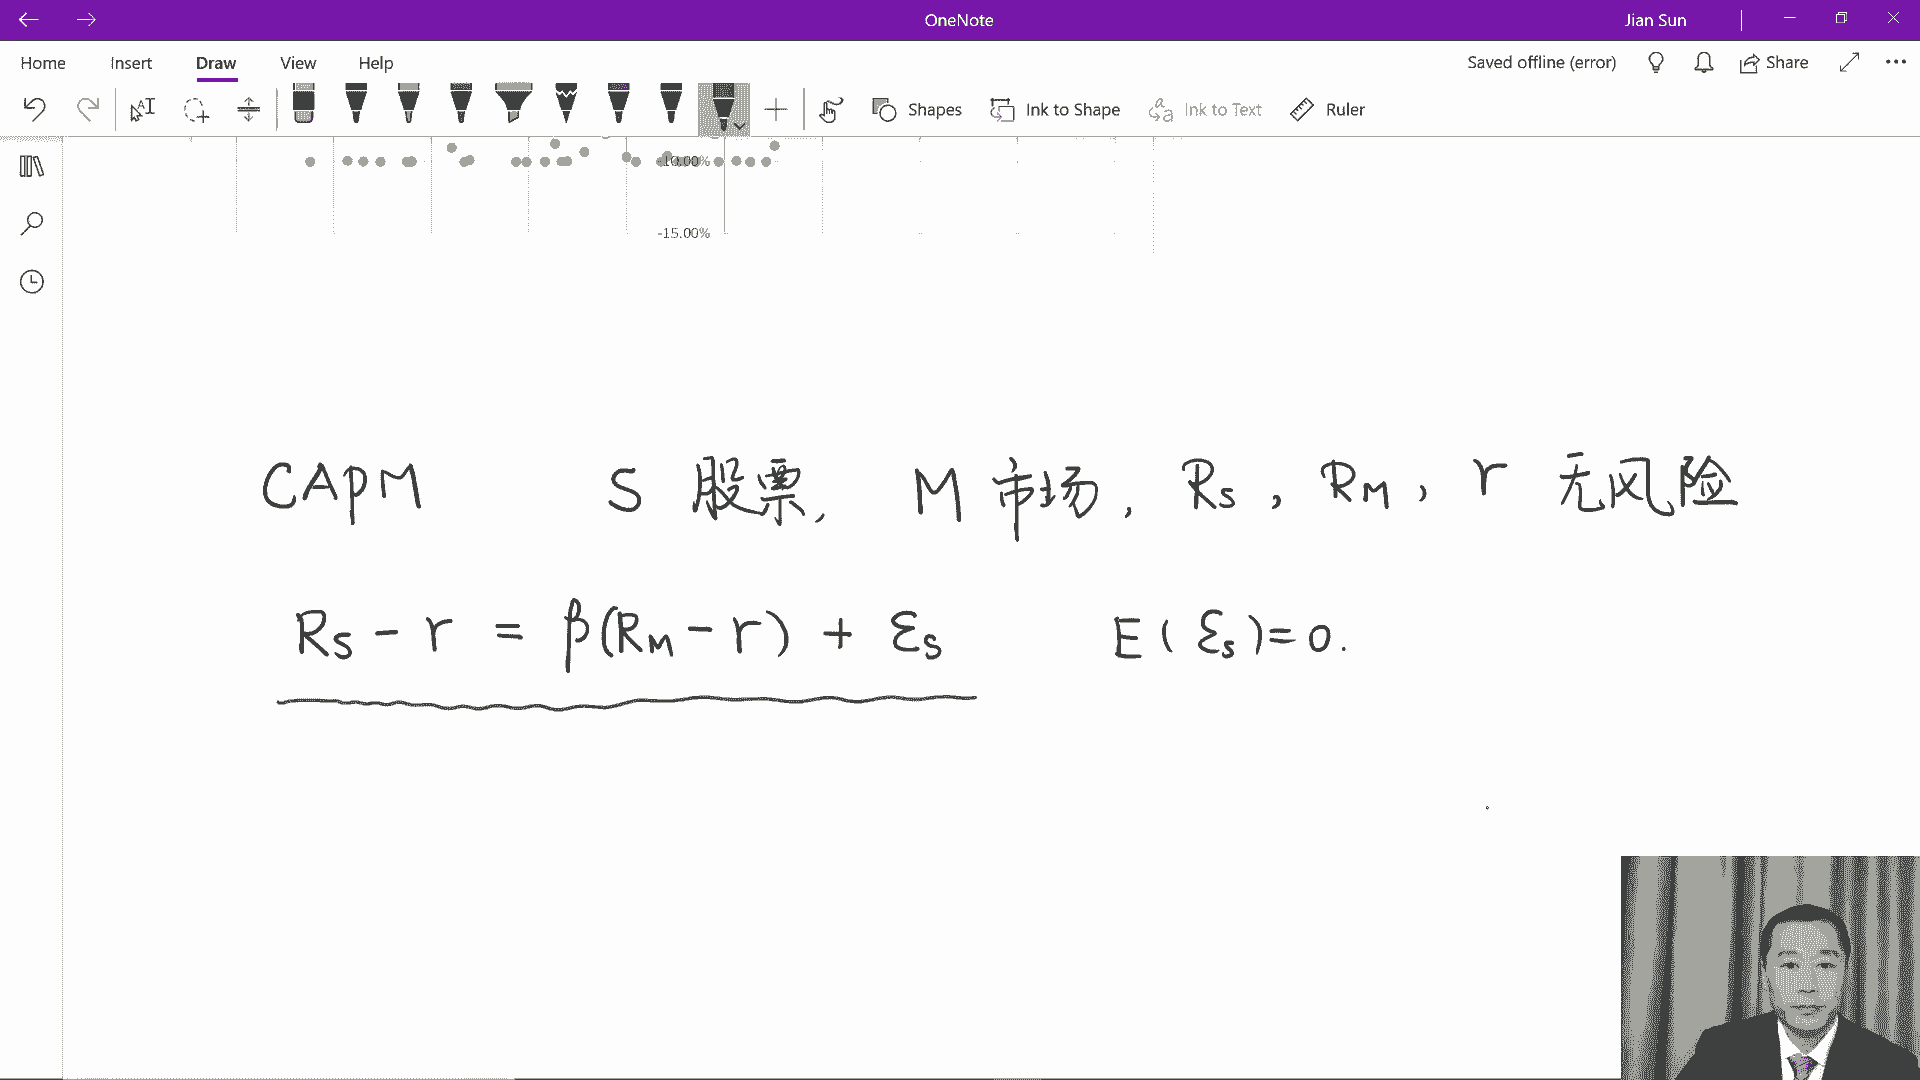 OneNote
Jian Sun
Home Insert Draw View Help
Saved offline (error)
Share
Shapes Ink to Shape Ink to Text Ruler
-10.00%
-15.00%
CAPM S 股票, M 市场, Rs, RM, r 无风险
Rs - r = β(RM - r) + εs E(εs)=0.